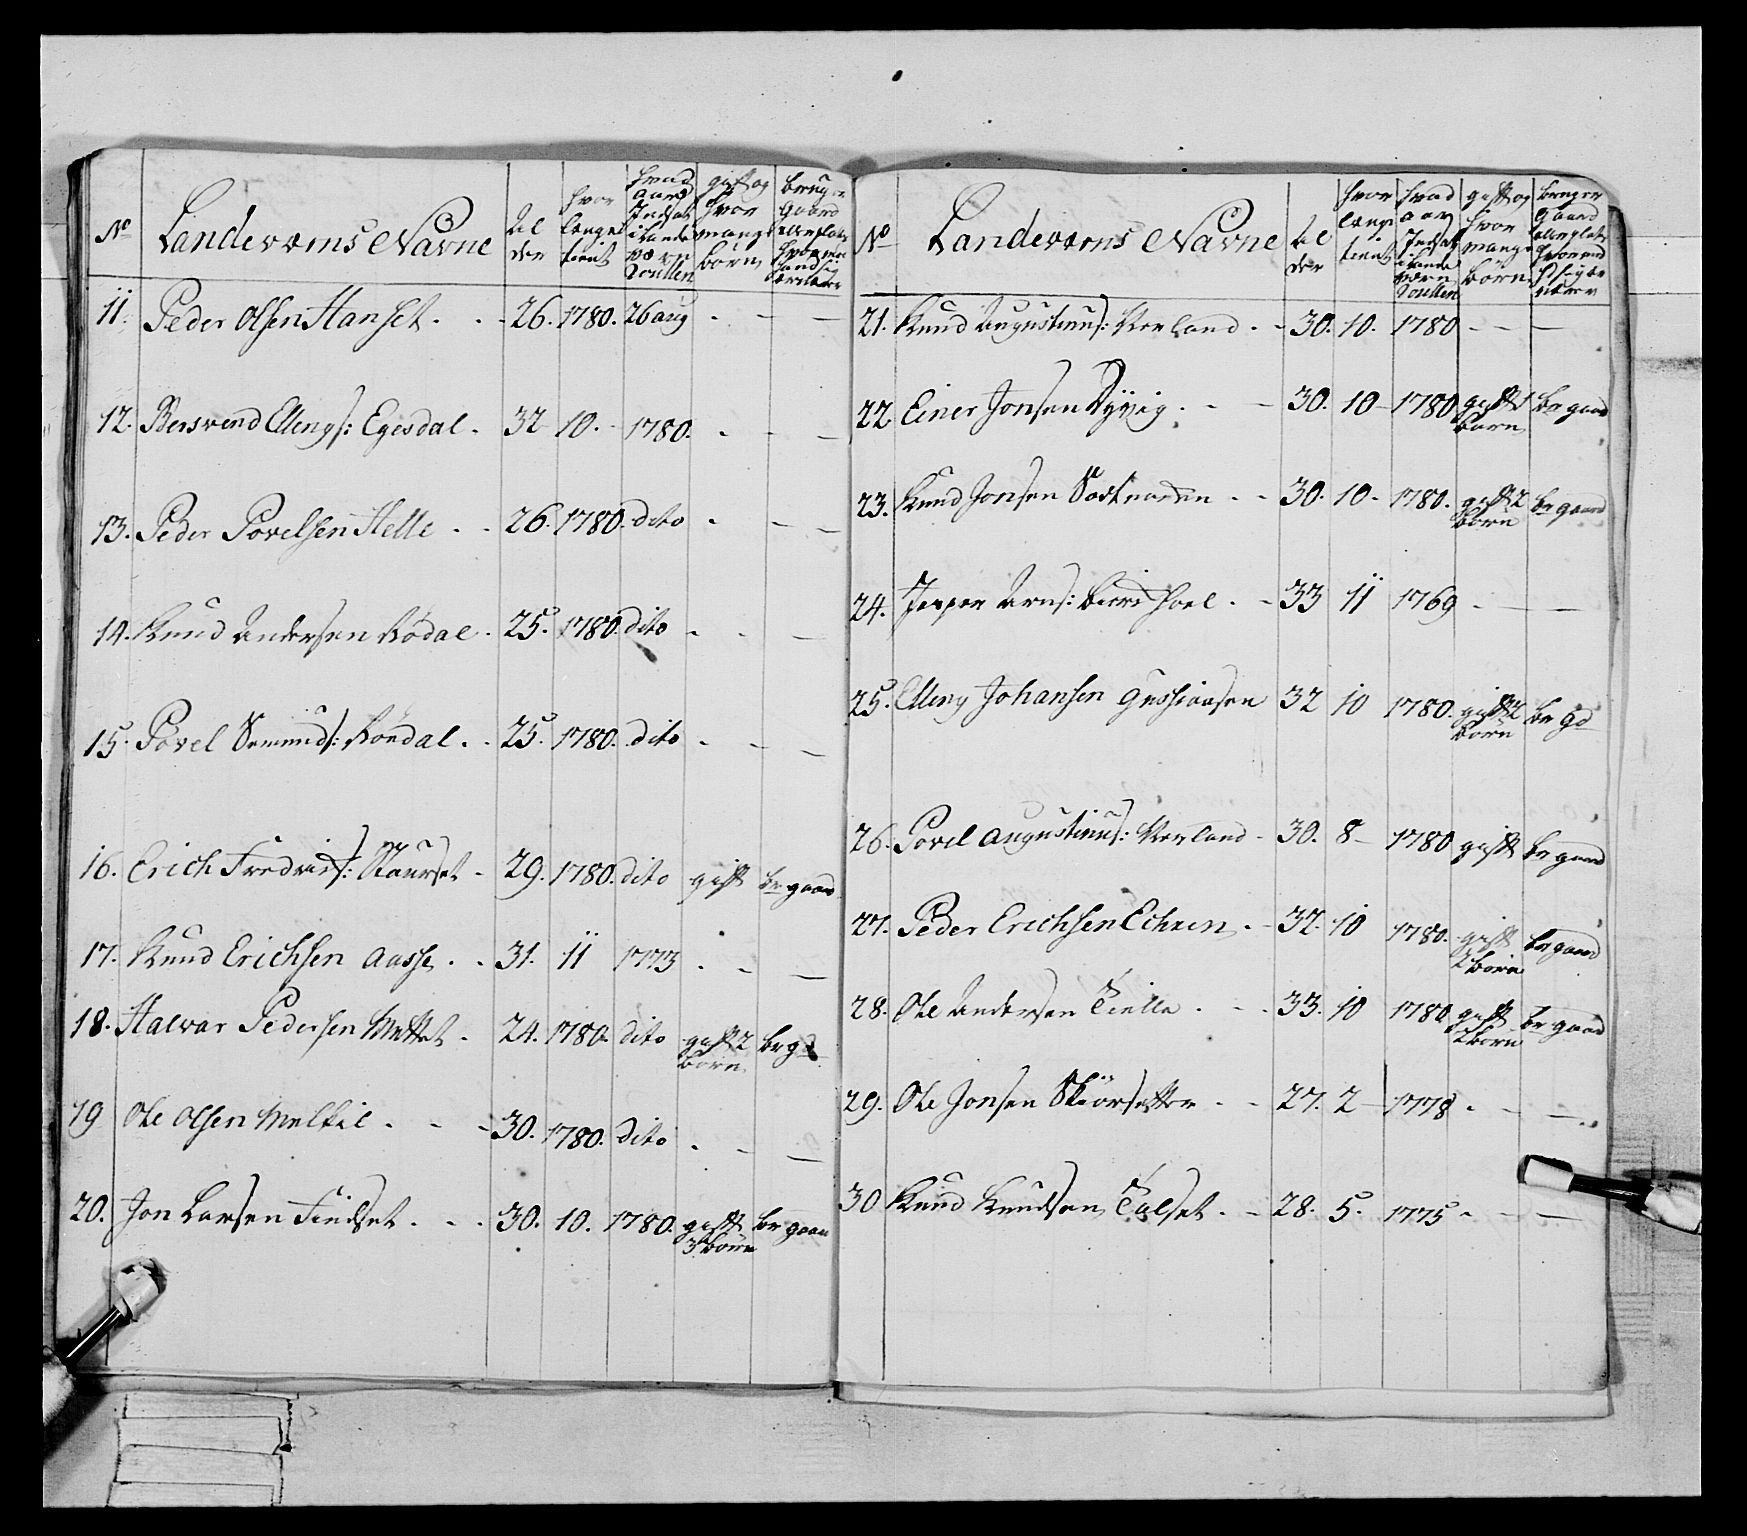 No Landeværns Navne
Al der
hvor længe tient
hvad Aar Indsat i Lande værn Roullen
gift og hvor mange børn
bruger Gaard eller plads
11. Peder Olsen Hanset . . - 26. 1780. 26 aug . - -
12. Bersvend Ellengs: Egesdal . 32 10. - 1780. . - -
13. Peder Povelsen Helle . . 26. 1780. dito . - -
14. Knud Andersen Rödal . 25. 1780. dito . . -
15. Povel Semunds: Röndal . . 25. 1780. dito . - -
16. Erich Fredrichs: Naurset - 29. 1780. dito gift br gaard
17. Knud Erichsen Aasse . . 31. 11 1773 . - -
18. Halvar Pedersen Mettet . 24. 1780. dito gift 2 børn br gd
19 Ole Olsen Melkil . - - 30. 1780. dito . - -
20. Jon Larsen Findset . . . 30. 10. 1780. gift 3 børn br gaar
No Landeværns Navne
Al der
hvor længe tient
hvad aar Indsat i Lande værn Roullen
gift og hvor mange børn
bruger Gaard eller plads
21. Knud Augustinus: Verland . - 30. 10. 1780 - - -
22. Einer Jonsen . - - 30. 10 - 1780 gift 1 barn br gaard
23. Knud Jonsen . - 30. 10 - 1780. gift 2 børn br gaard
24. Jesper Arns: . - 33 11 1769 - - -
25. Elleng Johansen 32 10 1780. gift 2 børn br gd
26. Povel Augustinus: Verland - 30. 8 - 1780 gift br gaard
27. Peder Erichsen Echren . - 32. 10 1780. gift 2 børn br gaard
28. Ole Andersen Tielle . - . 33. 10 1780 gift 2 børn br gaard
29. Ole Jonsen Skiörsetter . - 27. 2 - 1778 . - -
30 Knud Knudsen Talset . - 28. 5. 1775 - - -